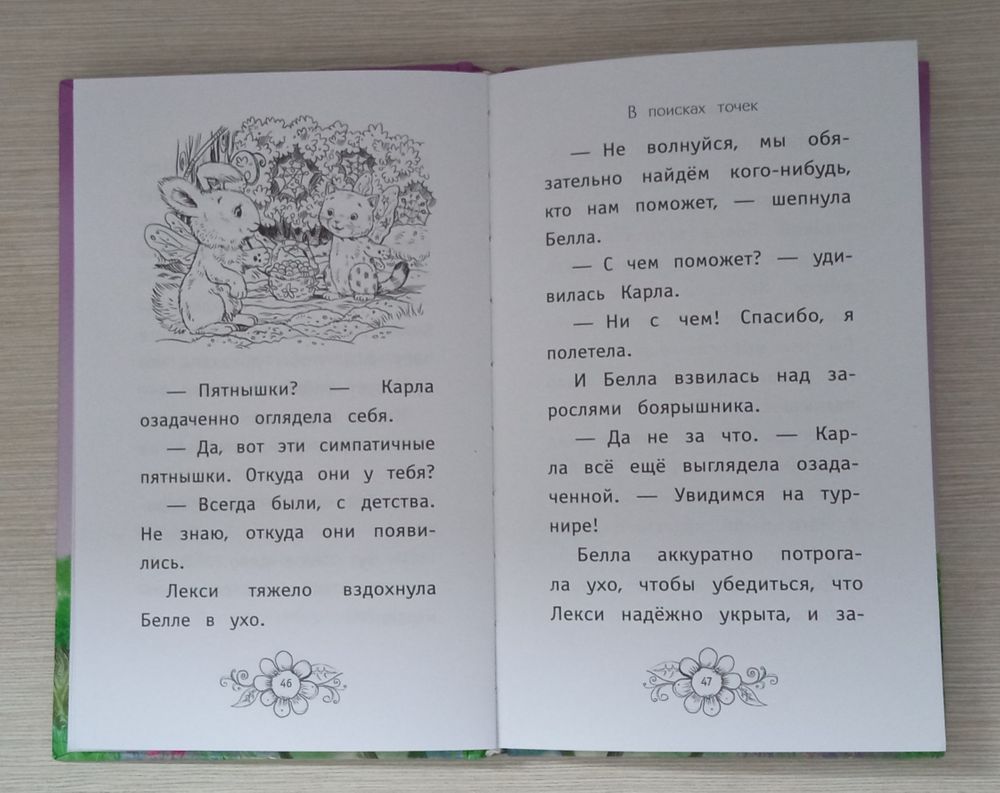 — Пятнышки? — Карла
озадаченно оглядела себя.
— Да, вот эти симпатичные
пятнышки. Откуда они у тебя?
— Всегда были, с детства.
Не знаю, откуда они появи-
лись.
Лекси тяжело вздохнула
Белле в ухо.
46
В поисках точек
— Не волнуйся, мы обя-
зательно найдём кого-нибудь,
кто нам поможет, — шепнула
Белла.
— С чем поможет? — уди-
вилась Карла.
— Ни с чем! Спасибо, я
полетела.
И Белла взвилась над за-
рослями боярышника.
— Да не за что. — Кар-
ла всё ещё выглядела озада-
ченной. — Увидимся на тур-
нире!
Белла аккуратно потрога-
ла ухо, чтобы убедиться, что
Лекси надёжно укрыта, и за-
47